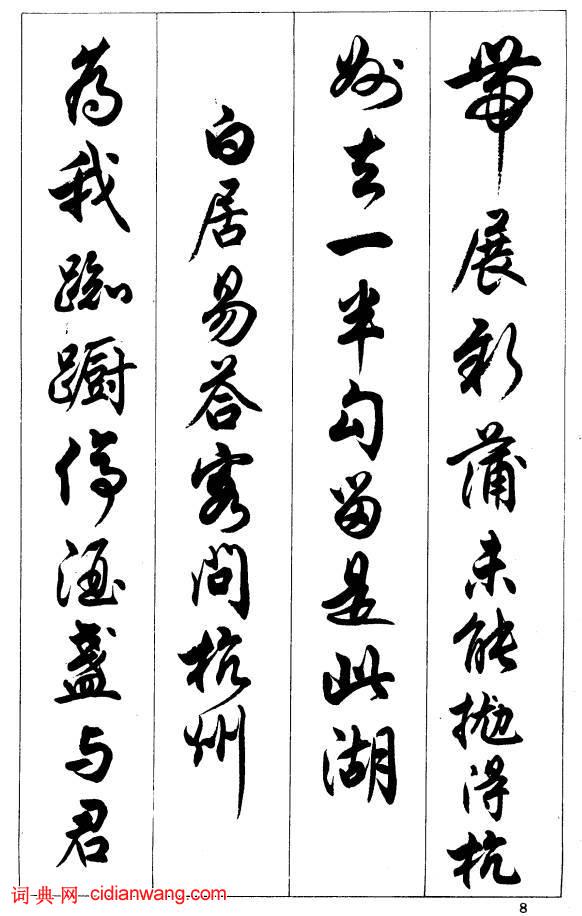 带展新蒲未能抛得杭
州去一半勾留是此湖
白居易答客问杭州
为我踟蹰停酒盏与君
词典网-cidianwang.com
8